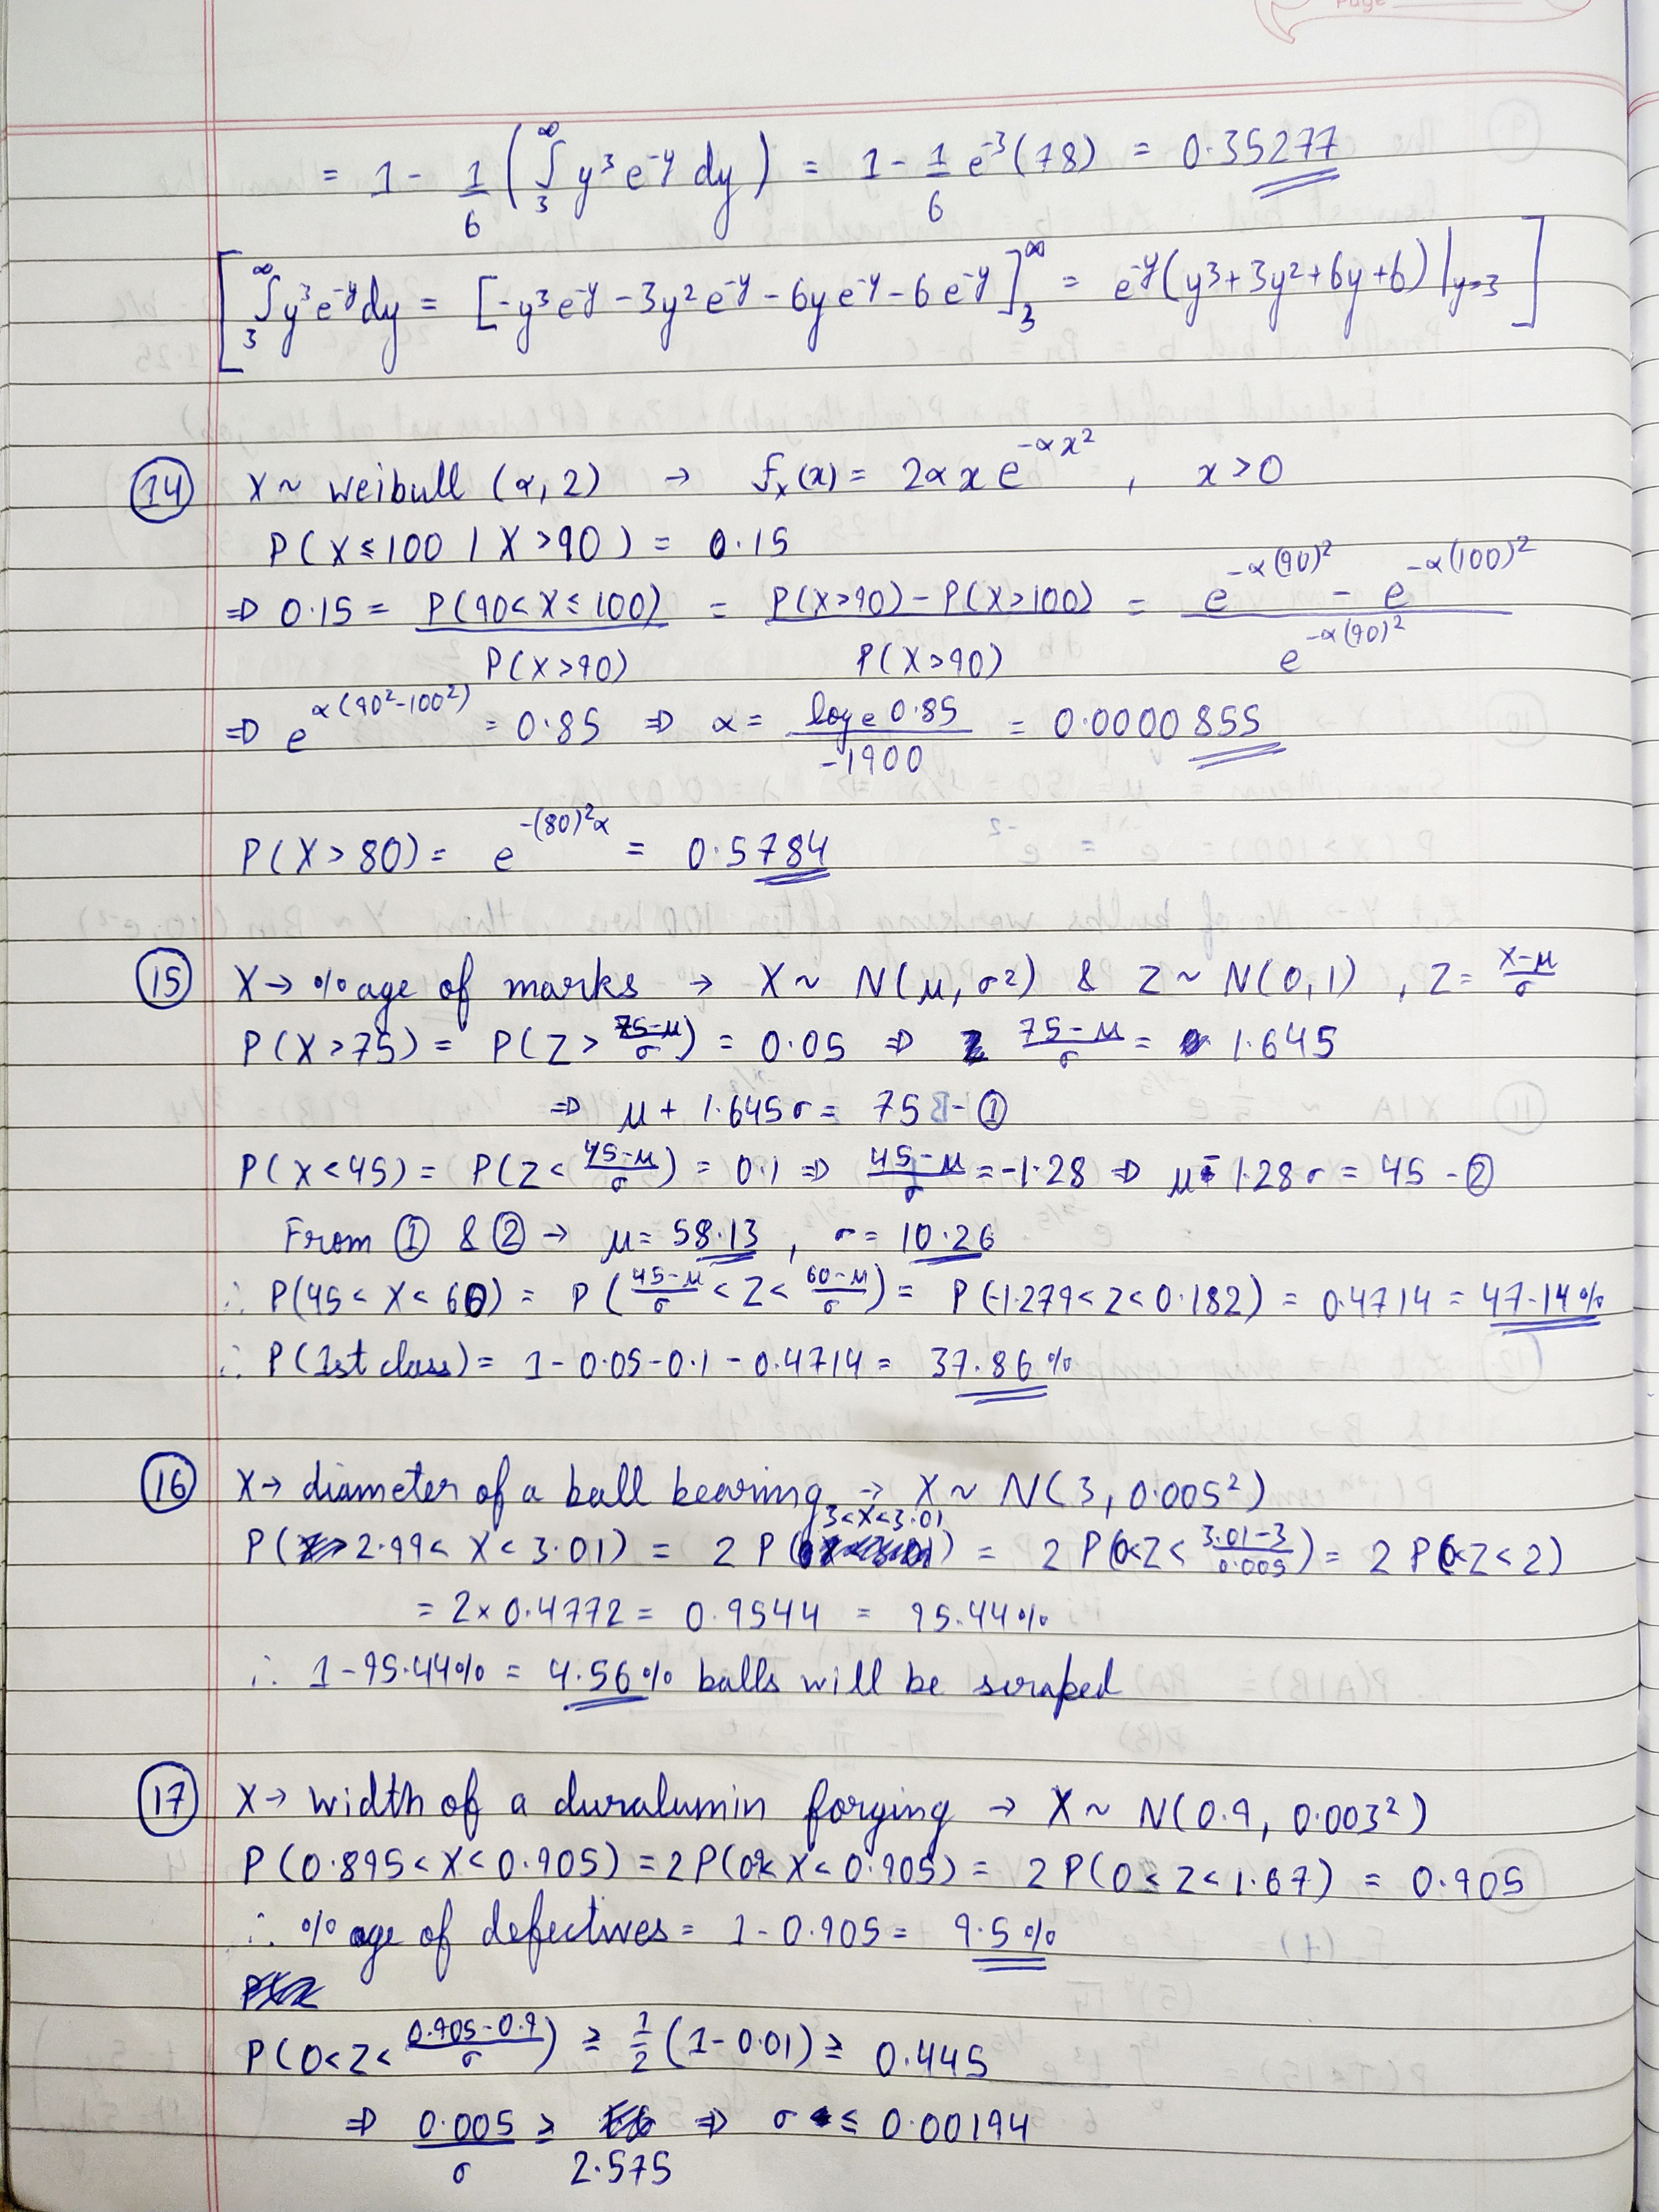 Page
= 1 - 1/6 ( ∫₃^∞ y³e^-y dy ) = 1 - 1/6 e^-3(78) = 0.35277
[ ∫₃^∞ y³e^-y dy = [-y³e^-y - 3y²e^-y - 6ye^-y - 6e^-y]₃^∞ = e^-y(y³+3y²+6y+6)|y=3 ]
(14) X ~ Weibull (α, 2) → f_X(x) = 2αx e^-αx² , x>0
P(X ≤ 100 | X > 90) = 0.15
⇒ 0.15 = P(90 < X ≤ 100) / P(X > 90) = P(X>90) - P(X>100) / P(X>90) = e^-α(90)² - e^-α(100)² / e^-α(90)²
⇒ e^α(90²-100²) = 0.85 ⇒ α = log_e 0.85 / -1900 = 0.0000855
P(X > 80) = e^-(80)²α = 0.5784
(15) X → %age of marks → X ~ N(μ, σ²) & Z ~ N(0,1) , Z = X-μ/σ
P(X > 75) = P(Z > 75-μ/σ) = 0.05 ⇒ 75-μ/σ = 1.645
⇒ μ + 1.645σ = 75 - ①
P(X < 45) = P(Z < 45-μ/σ) = 0.1 ⇒ 45-μ/σ = -1.28 ⇒ μ - 1.28σ = 45 - ②
From ① & ② → μ = 58.13 , σ = 10.26
∴ P(45 < X < 60) = P(45-μ/σ < Z < 60-μ/σ) = P(-1.279 < Z < 0.182) = 0.4714 = 47.14%
∴ P(1st class) = 1 - 0.05 - 0.1 - 0.4714 = 37.86%
(16) X → diameter of a ball bearing → X ~ N(3, 0.005²)
P(2.99 < X < 3.01) = 2 P(3<X<3.01) = 2 P(0<Z< 3.01-3/0.005) = 2 P(0<Z<2)
= 2 × 0.4772 = 0.9544 = 95.44%
∴ 1 - 95.44% = 4.56% balls will be scraped
(17) X → width of a duralumin forging → X ~ N(0.9, 0.003²)
P(0.895 < X < 0.905) = 2P(0< X < 0.905) = 2P(0 < Z < 1.67) = 0.905
∴ %age of defectives = 1 - 0.905 = 9.5%
P(0<Z< 0.905-0.9/σ) ≥ 1/2 (1 - 0.01) ≥ 0.445
⇒ 0.005/σ ≥ 2.575 ⇒ σ ≤ 0.00194